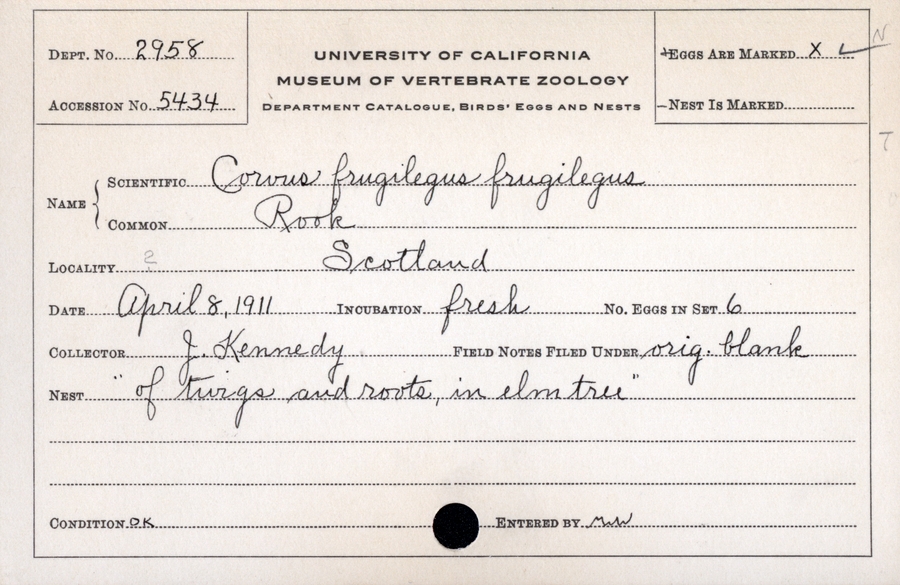 Dept. No. 2958
Accession No. 5434
UNIVERSITY OF CALIFORNIA
MUSEUM OF VERTEBRATE ZOOLOGY
Department Catalogue, Birds' Eggs and Nests
Eggs Are Marked X
Nest Is Marked
Name
Scientific Corvus frugilegus frugilegus
Common Rook
Locality ? Scotland
Date April 8, 1911 Incubation fresh No. Eggs in Set 6
Collector J. Kennedy Field Notes Filed Under orig. blank
Nest "of twigs and roots, in elm tree"
Condition OK Entered by